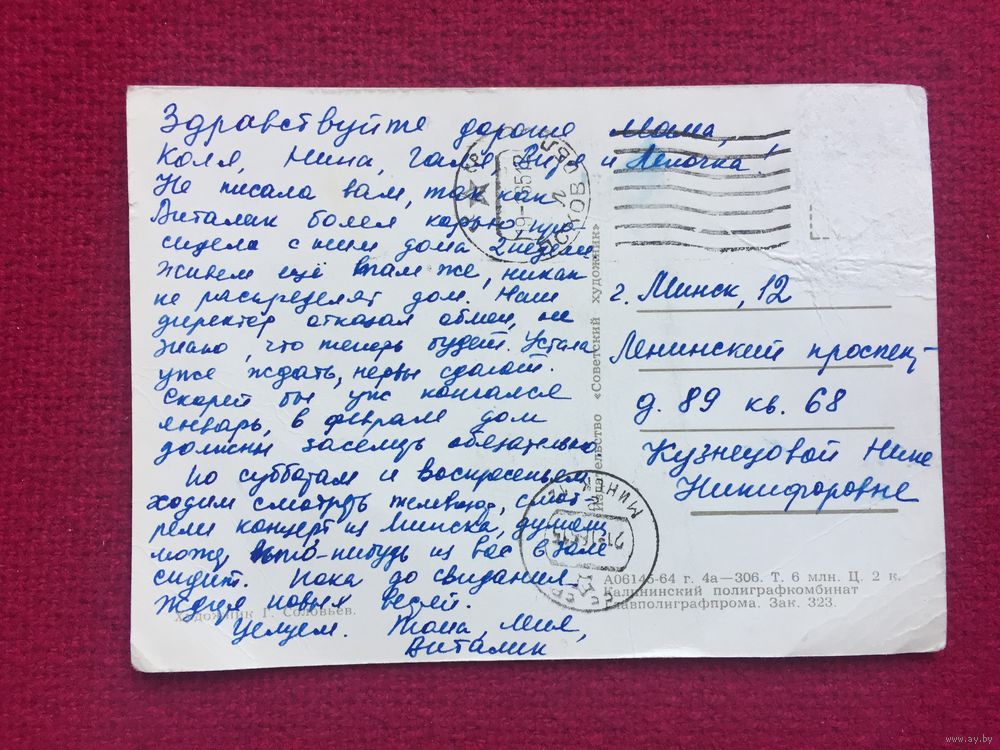 Здравствуйте дорогие мама,
Коля, Нина, Галя, Витя и Леночка!
Не писала вам, так как
Виталик болел корью,
сидела с ним дома 2 недели.
Живем ещё там же, никак
не распределят дом. Наш
директор отказал обмен, не
знаю, что теперь будет. Устала
уже ждать, нервы сдают.
Скорей бы уж кончался
январь, в феврале дом
должны заселить обязательно.
По субботам и воскресеньям
ходим смотреть телевизор, смот-
рели концерт из Минска, думали
может кто-нибудь из вас в зале
сидит. Пока до свидания.
Ждем новых вестей.
Целуем. Тома, Миля,
Виталик
Художник Г. Соловьев.
Издательство «Советский художник»
г. Минск, 12
Ленинский проспект
д. 89 кв. 68
Кузнецовой Нине
Никифоровне
МИНСК
А06145-64 г. 4а—306. Т. 6 млн. Ц. 2 к.
Калининский полиграфкомбинат
Главполиграфпрома. Зак. 323.
www.ay.by